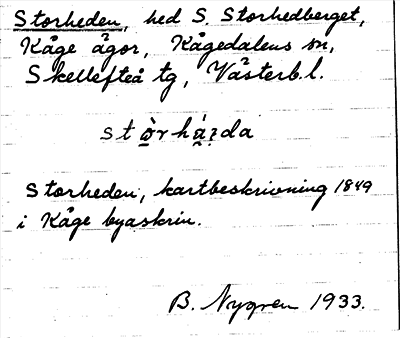 Storheden, hed S. Storhedberget,
Kåge ägor, Kågedalens sn,
Skellefteå tg, Västerb.l.
stò̱rhá̱i̯da
Storheden, kartbeskrivning 1849
i Kåge byaskrin.
B. Nygren 1933.